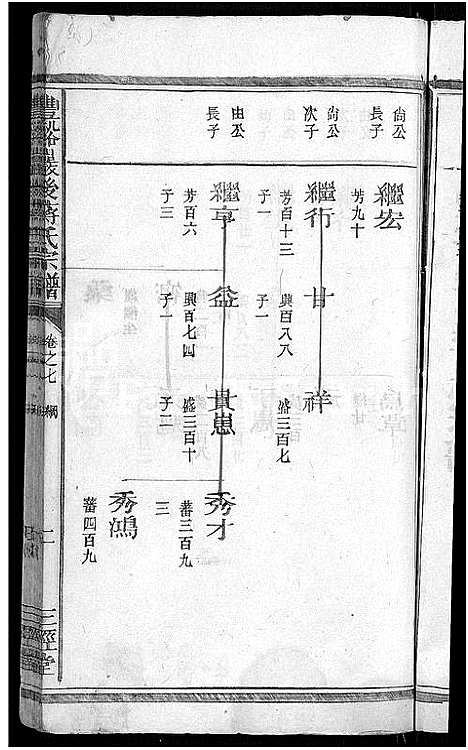 尙公
長子
繼宏
芳九十
尙公
次子
繼行
芳百十三
子一
甘
興百八八
子一
祥
盛三百七
由公
長子
繼亨
芳百六
子三
益
興百七四
子一
貴崽
盛三百十
子二
秀才
蕃三百九
三
秀鴻
蕃四百九
後蔣氏宗譜
卷之七
二
三徑堂